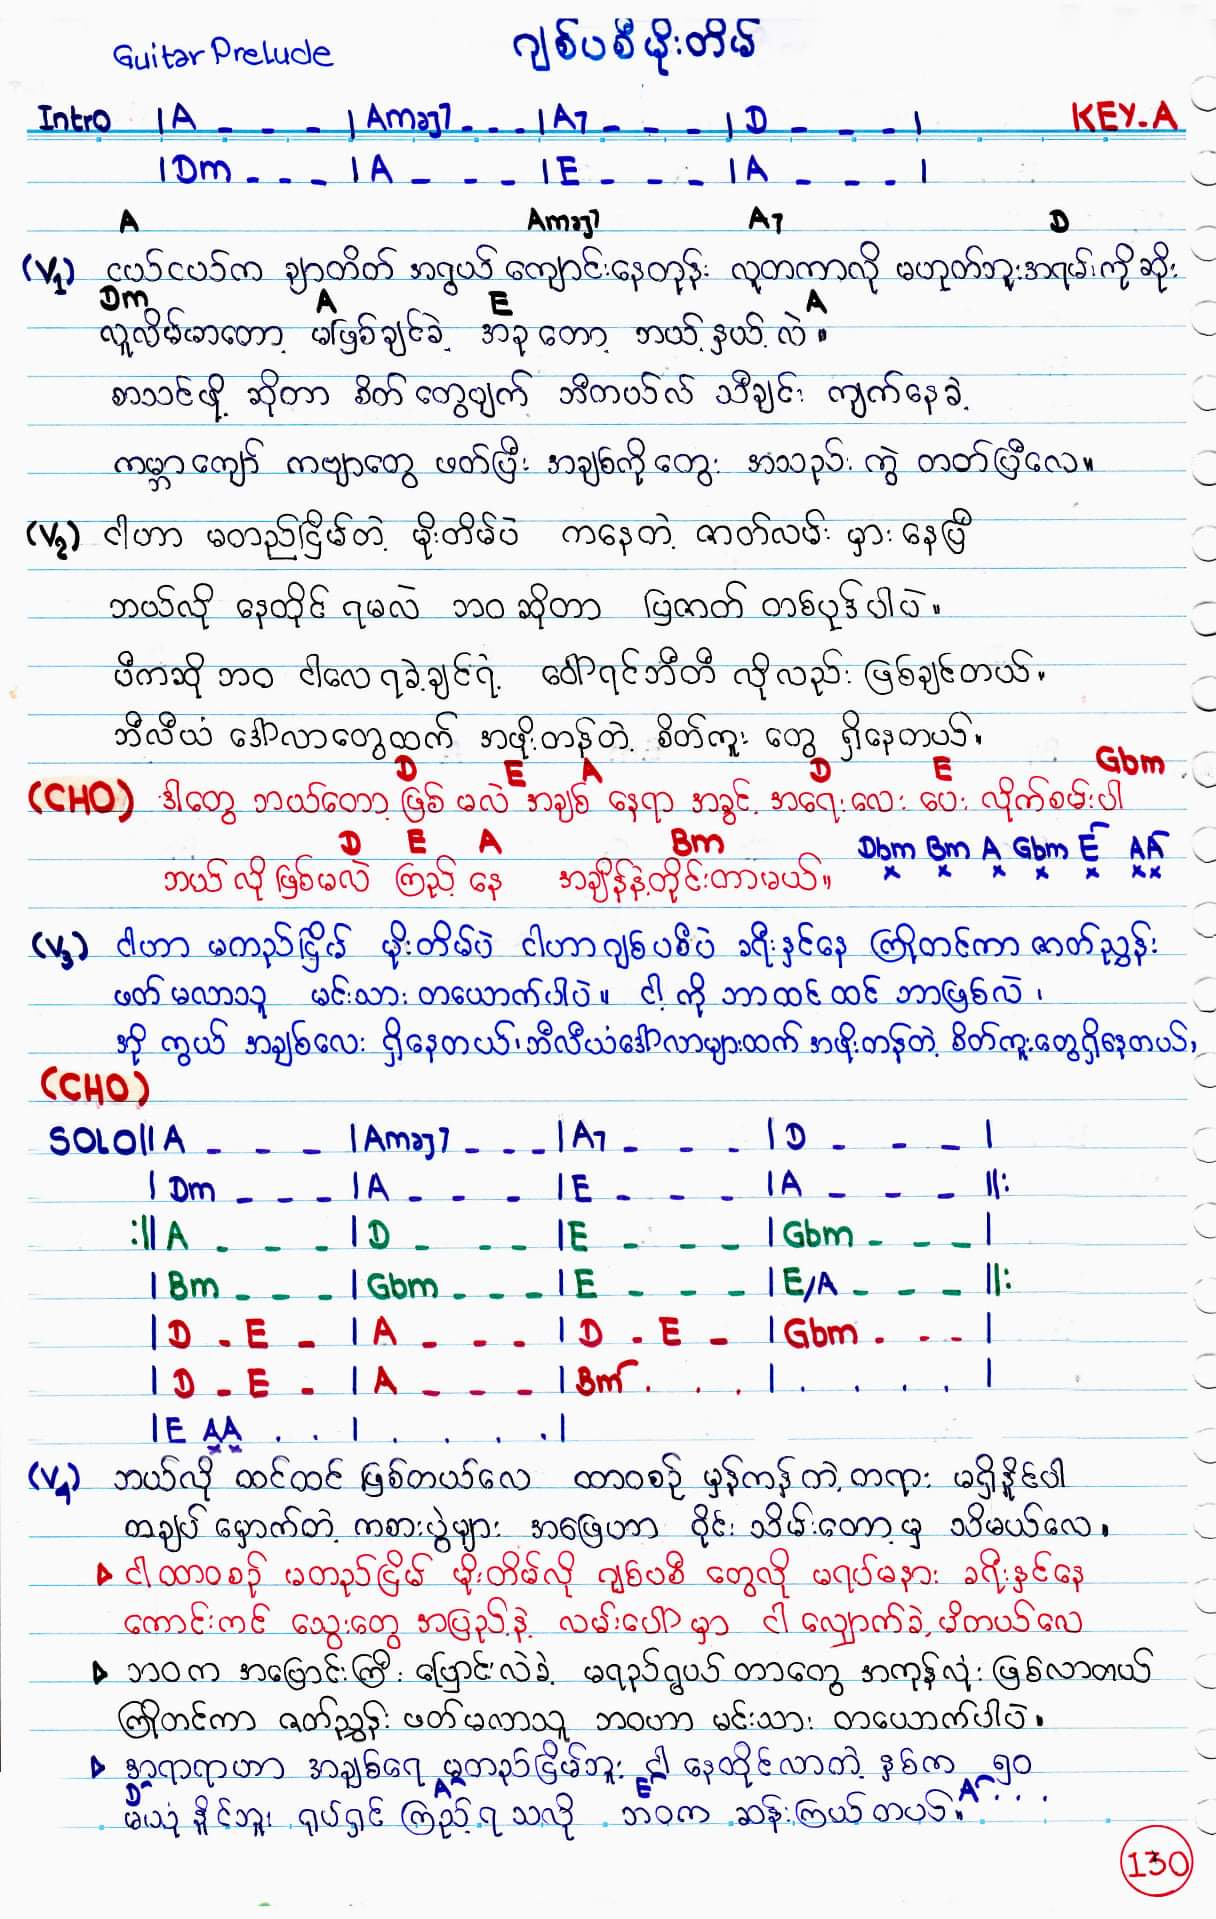 Guitar Prelude ဂျစ်ပစီမိုးတိမ်
Intro |A _ _ _ |Amaj7 _ _ _ |A7 _ _ _ |D _ _ _ | KEY-A
|Dm _ _ _ |A _ _ _ |E _ _ _ |A _ _ _ |
A Amaj7 A7 D
(V1) ငယ်ငယ်က ချာတိတ် အရွယ် ကျောင်းနေတုန်း လူတကာလို မဟုတ်ဘူးအရမ်းကိုဆိုး
Dm A E A
လူလိမ်မာတော့ မဖြစ်ချင်ခဲ့ အခုတော့ ဘယ့်နှယ့်လဲ။
စာသင်ဖို့ ဆိုတာ စိတ်တွေပျက် ဘီတယ်လ် သီချင်း ကျက်နေခဲ့
ကမ္ဘာကျော် ကဗျာတွေ ဖတ်ပြီး အချစ်ကိုတွေး အသည်းကွဲ တတ်ပြီလေ။
(V2) ငါဟာ မတည်ငြိမ်တဲ့ မိုးတိမ်ပဲ ကနေတဲ့ ဇာတ်လမ်း မှားနေပြီ
ဘယ်လို နေထိုင် ရမလဲ ဘဝဆိုတာ ပြဇာတ် တစ်ပုဒ်ပါပဲ။
ဖီကဆို ဘဝ ငါလေ ရခဲ့ချင်ရဲ့ ဝေါရင်ဘီတီ လိုလည်း ဖြစ်ချင်တယ်။
ဘီလီယံ ဒေါ်လာတွေထက် အဖိုးတန်တဲ့ စိတ်ကူး တွေ ရှိနေတယ်။
D E A D E Gbm
(CHO) ဒါတွေ ဘယ်တော့ ဖြစ် မလဲ အချစ် နေရာ အခွင့် အရေးလေး ပေး လိုက်စမ်းပါ
D E A Bm Dbm Bm A Gbm E AA
ဘယ် လိုဖြစ်မလဲ ကြည့် နေ အချိန်နဲ့တိုင်းတာမယ်။
(V3) ငါဟာ မတည်ငြိမ် မိုးတိမ်ပဲ ငါဟာဂျစ်ပစီပဲ ခရီးနှင်နေ ကြိုတင်ကာ ဇာတ်ညွှန်း
ဖတ်မလာသူ မင်းသား တယောက်ပါပဲ။ ငါ့ကို ဘာထင်ထင် ဘာဖြစ်လဲ၊
အို ကွယ် အချစ်လေး ရှိနေတယ်၊ဘီလီယံဒေါ်လာများထက် အဖိုးတန်တဲ့ စိတ်ကူးတွေရှိနေတယ်၊
(CHO)
SOLO|| A _ _ _ |Amaj7 _ _ _ |A7 _ _ _ |D _ _ _ |
|Dm _ _ _ |A _ _ _ |E _ _ _ |A _ _ _ ||:
:||A _ _ _ |D _ _ _ |E _ _ _ |Gbm _ _ _ |
|Bm _ _ _ |Gbm _ _ _ |E _ _ _ |E/A _ _ _ ||:
|D _ E _ |A _ _ _ |D _ E _ |Gbm _ _ _ |
|D _ E _ |A _ _ _ |Bm . . . |. . . . |
|E AA . . |. . . . |
(V4) ဘယ်လို ထင်ထင် ဖြစ်တယ်လေ ထာဝစဉ် မှန်ကန်တဲ့ တရား မရှိနိုင်ပါ
တချုပ် မှောက်တဲ့ ကစားပွဲများ အဖြေဟာ ဝိုင်း သိမ်းတော့မှ သိမယ်လေ။
ငါထာဝစဉ် မတည်ငြိမ် မိုးတိမ်လို ဂျစ်ပစီ တွေလို မရပ်မနား ခရီးနှင်နေ
ကောင်းကင် သွေးတွေ အပြည့်နဲ့ လမ်းပေါ်မှာ ငါ လျှောက်ခဲ့မိတယ်လေ
ဘဝက အပြောင်းကြီး ပြောင်းလဲခဲ့ မရည်ရွယ် တာတွေ အကုန်လုံး ဖြစ်လာတယ်
ကြိုတင်ကာ ဇတ်ညွှန်း ဖတ်မလာသူ ဘဝဟာ မင်းသား တယောက်ပါပဲ။
ရာရာဟာ အချစ်ရေ မတည်ငြိမ်ဘူး ငါ နေထိုင်လာတဲ့ နှစ်က ၅၀
D A E A
မယုံ နိူင်ဘူး ရုပ်ရှင် ကြည့်ရ သလို ဘဝက ဆန်းကြယ်တယ်။
130